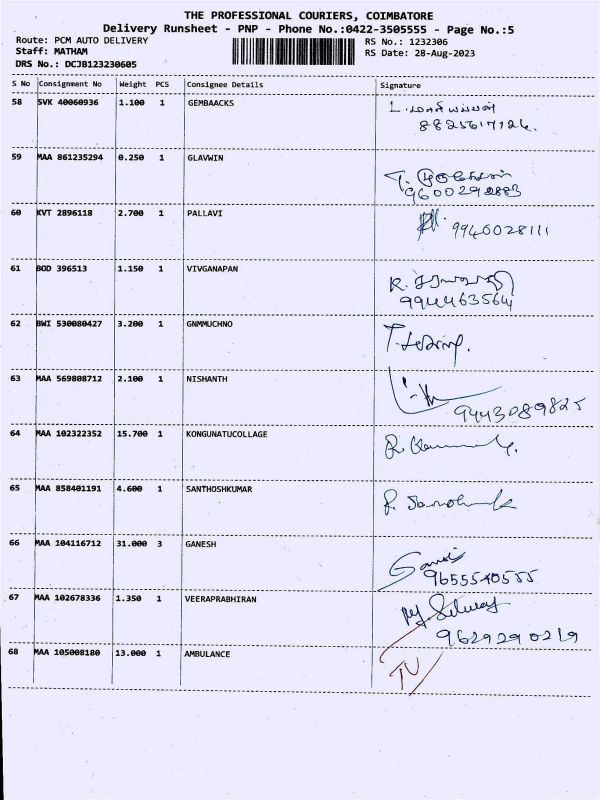 THE PROFESSIONAL COURIERS, COIMBATORE
Delivery Runsheet - PNP - Phone No.:0422-3505555 - Page No.:5
Route: PCM AUTO DELIVERY RS No.: 1232306
Staff: MATHAM RS Date: 28-Aug-2023
DRS No.: DCJB123230605
S No Consignment No Weight PCS Consignee Details Signature
58 SVK 40060936 1.100 1 GEMBAACKS
8825617124.
59 MAA 861235294 0.250 1 GLAVWIN
9600292883
60 KVT 2896118 2.700 1 PALLAVI 9940028111
61 BOD 396513 1.150 1 VIVGANAPAN
9944463564
62 BWI 530080427 3.200 1 GNMMUCHNO
63 MAA 569808712 2.100 1 NISHANTH
9443089825
64 MAA 102322352 15.700 1 KONGUNATUCOLLAGE
65 MAA 858401191 4.600 1 SANTHOSHKUMAR
66 MAA 104116712 31.000 3 GANESH
9655540555
67 MAA 102678336 1.350 1 VEERAPRABHIRAN
9629290219
68 MAA 105008180 13.000 1 AMBULANCE